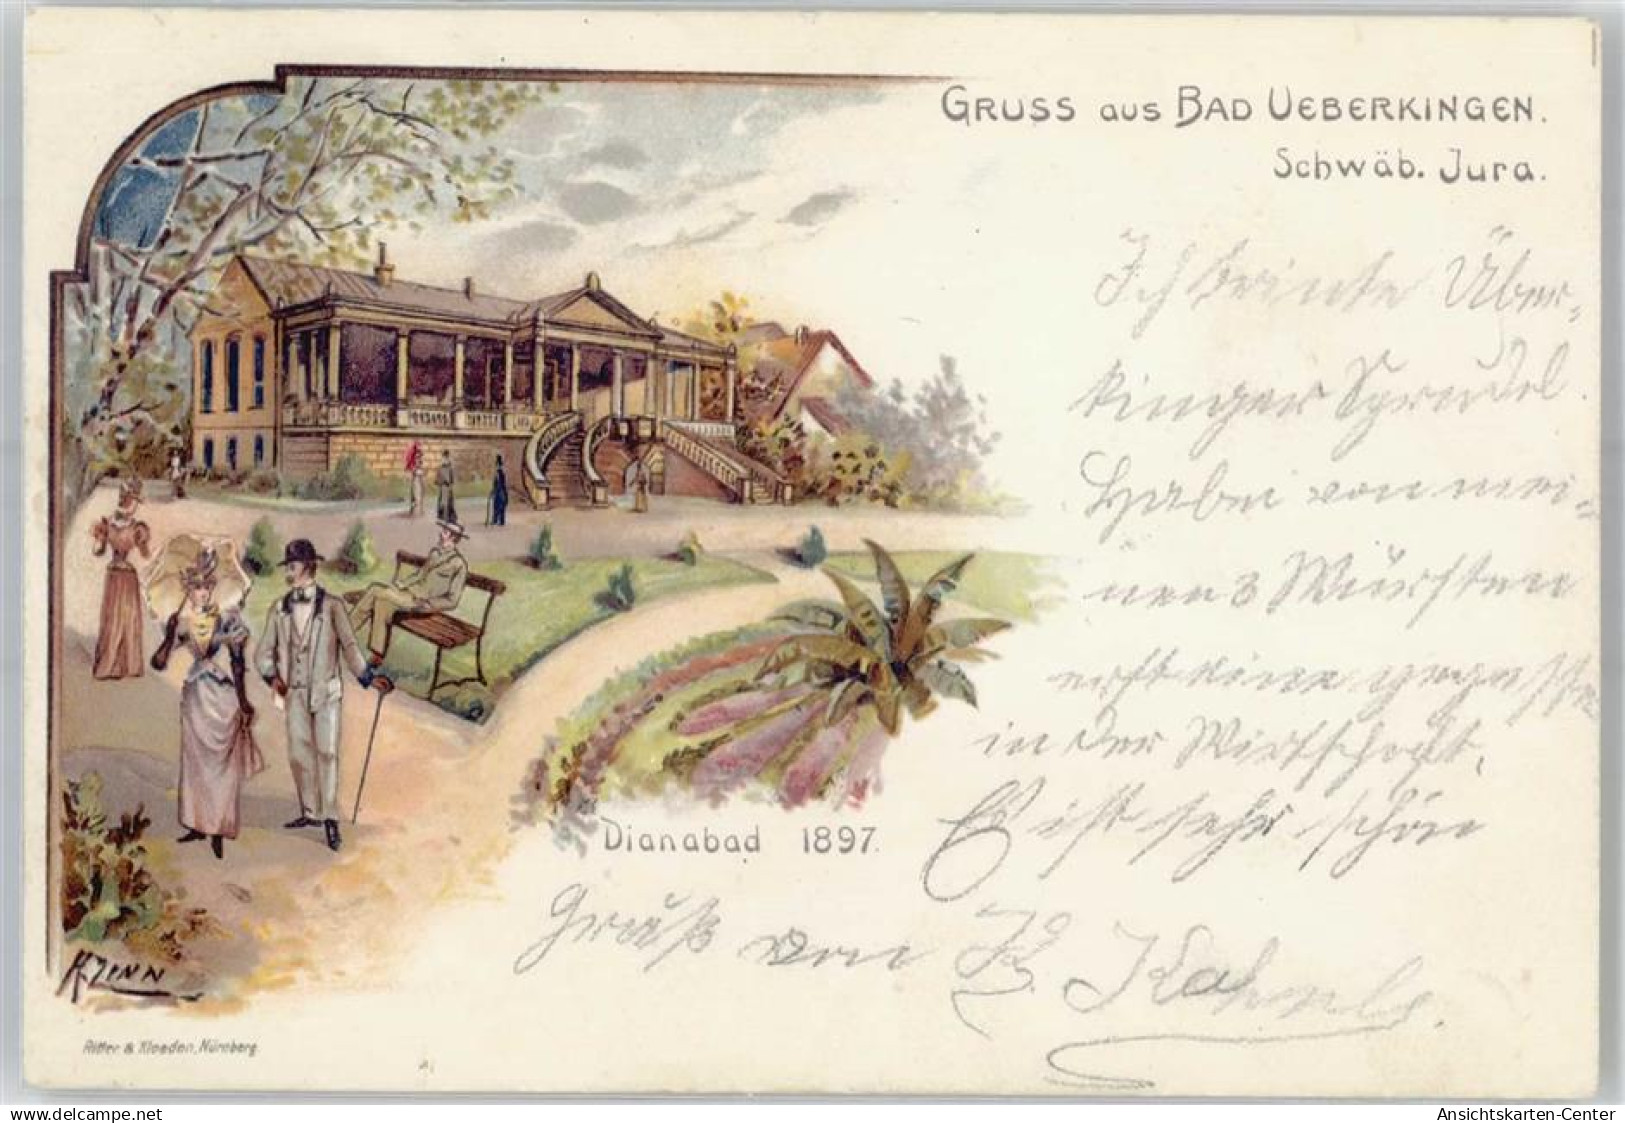 GRUSS aus BAD UEBERKINGEN.
Schwäb. Jura.
Ich trinke Über-
kinger Sprudel.
Habe von mei-
nen 3 Würsten
erst eine gegessen
in der Wirtschaft.
Es ist sehr schön
Gruß von
Dianabad 1897.
H. ZINN
Ritter & Kloeden, Nürnberg
www.delcampe.net
Ansichtskarten-Center